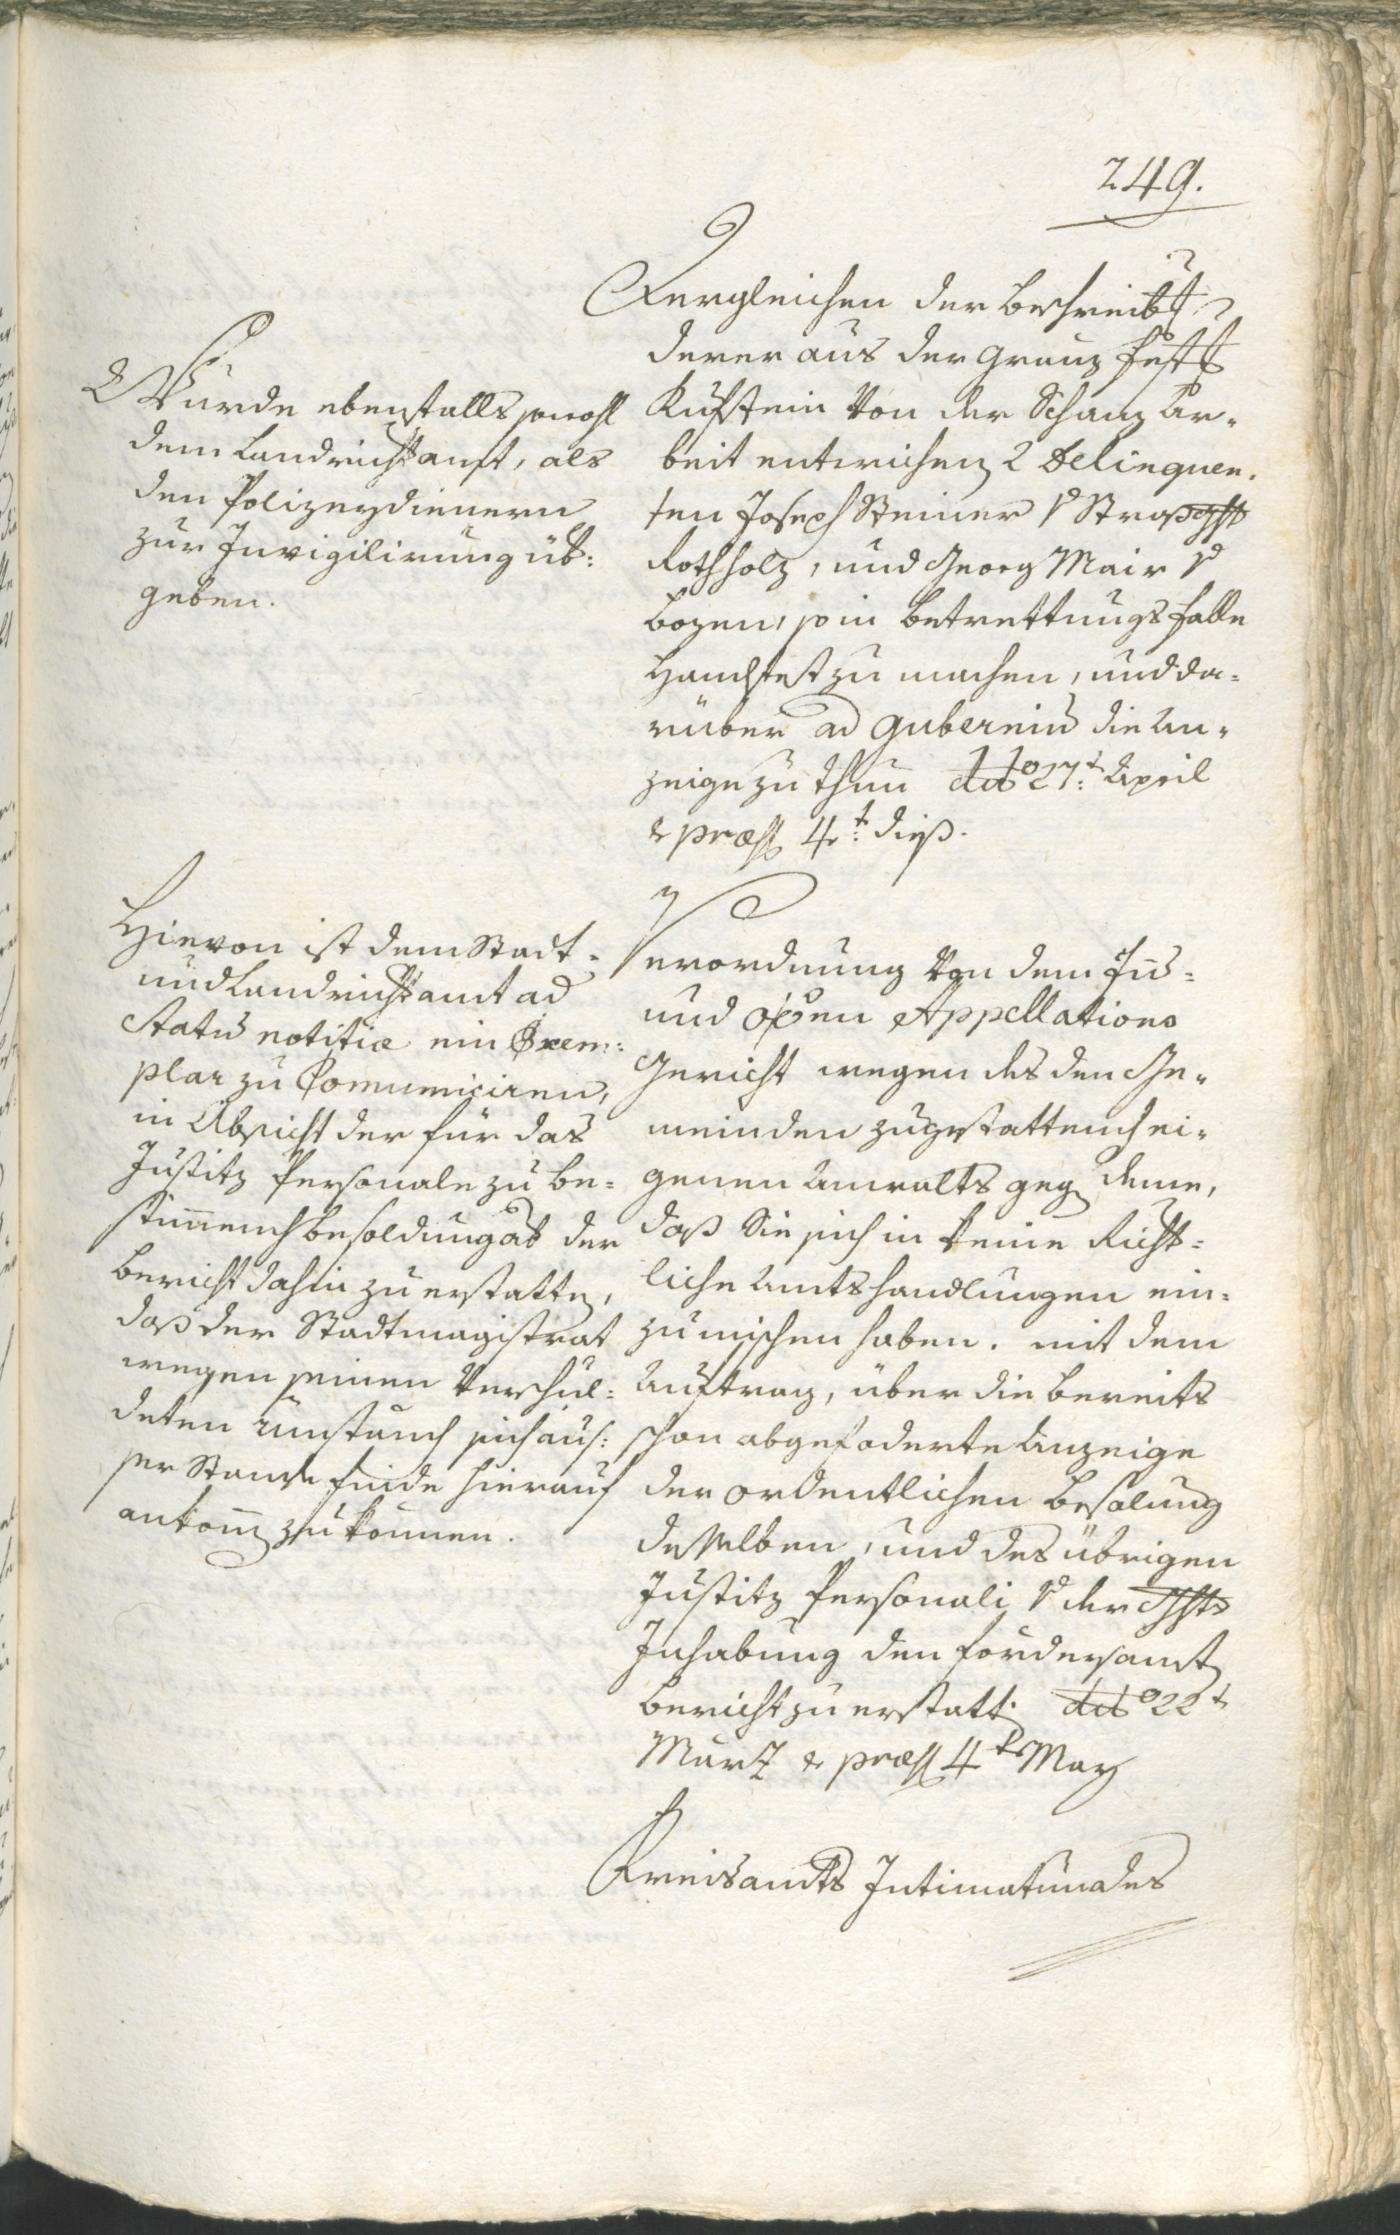 249.
Dergleichen der Beschreib.
derer aus der Granz Fest.
Kufstein von der Schanz Ar-
beit entwichen 2 Delinquen-
ten Joseph Steiner
Rothholz, und Georg Mair
Bozen, so in Betrettungs Falle
Handfest zu machen, und da-
rüber ad Gubernium die An-
zeige zu thun ddo 27t. April
& præs. 4t. dieß.
Wurde ebenfalls sowohl
dem Landrichteramt, als
den Polizeydienern
zur Invigilirung üb:
geben.
Verordnung von dem In-
und Appellations
Gericht wegen des den Ge-
meinden zugestattend ei-
genen Anwalts geg deme,
daß Sie sich in keine Richt-
liche Amtshandlungen ein-
zumischen haben. mit dem
Auftrag, über die bereits
schon abgefoderte Anzeige
der ordentlichen Besolung
desselben, und des übrigen
Justitz Personali der
Inhabung den fördersamst
Bericht zu erstatt. ddo 22t
Marz & præs. 4t May
Hievon ist dem Stadt-
und Landrichteramt ad
statum notitiæ ein Exem-
plar zu Comuniciren,
in Absicht der für das
Justitz Personale zu be-
stimend Besoldung ab der
Bericht dahin zu erstatten,
daß der Stadtmagistrat
wegen seinen Verschul-
deten Umständ sich aus-
ser Stande finde hierauf
ankom zu können.
Kreisamts Intimatum des